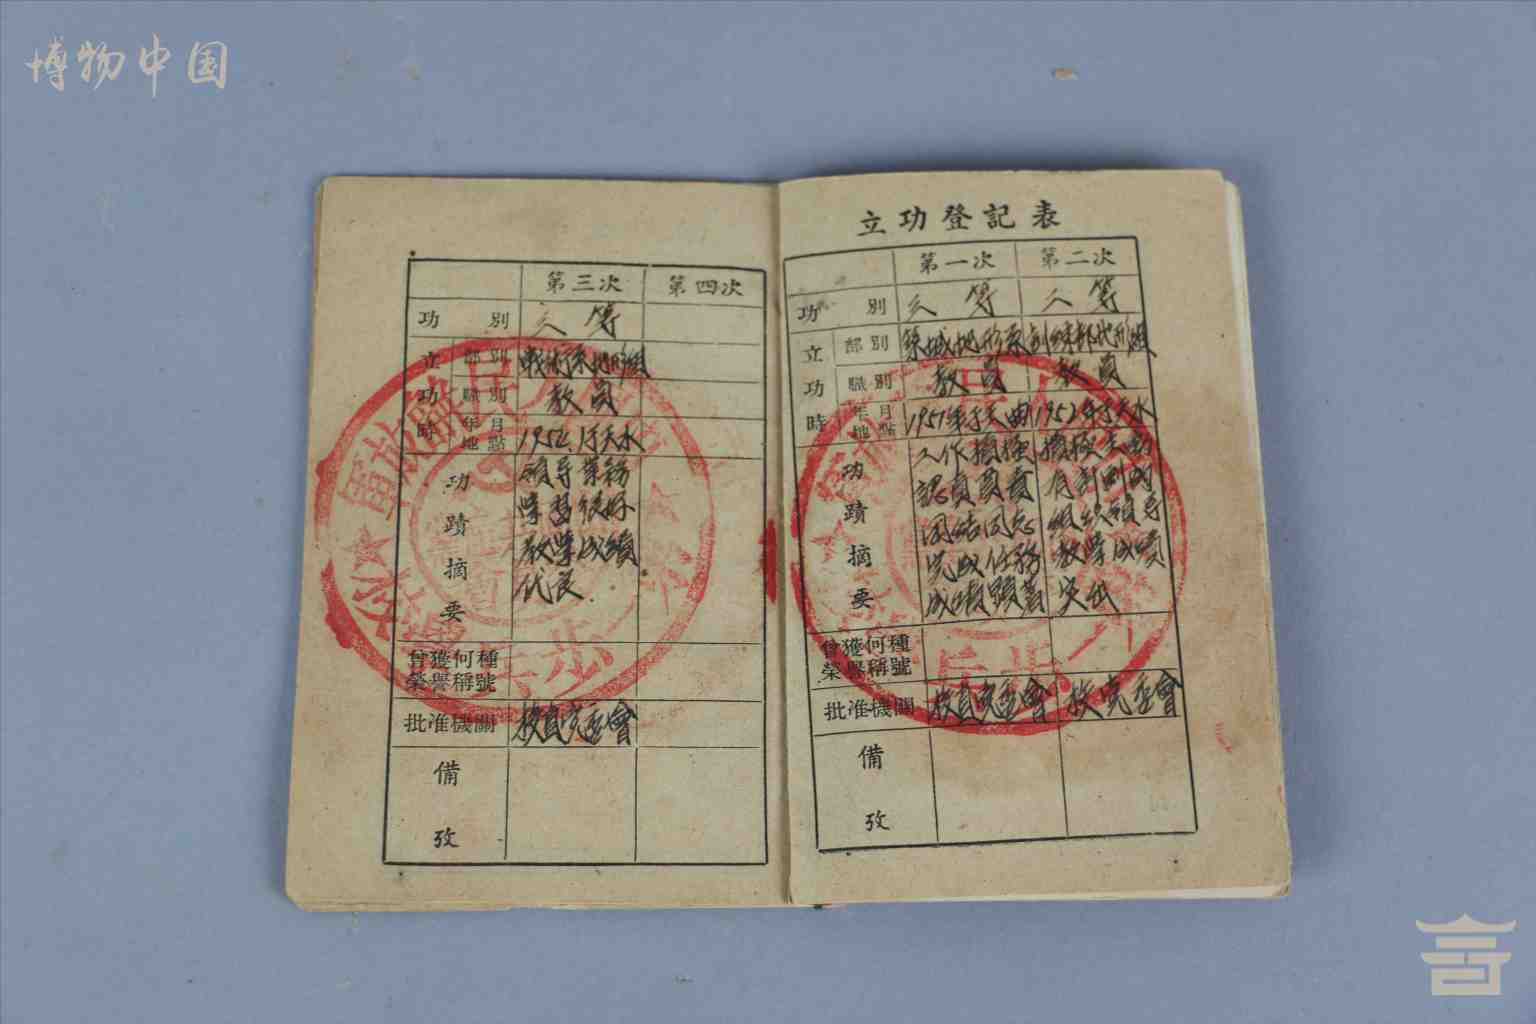 博物中国
立功登記表
第一次 第二次
功別 三等 三等
立功時
部別 築城地形系 訓練部地形組
職別 教員 教員
年月地點 1951年于天曲 1952年于天水
功蹟摘要
工作積極
認真負責
团結同志
完成任務
成績顕著
積極主動
有計劃的
組织領导
教学成績
突出
曾獲何種
榮譽稱號
批准機關 校党委會
備攷
第三次 第四次
功別 三等
立功時
部別 戰術系地形組
職別 教員
年月地點 1952.于天水
功蹟摘要
領导業務
學習很好
教學成績
曾獲何種
榮譽稱號
批准機關
備攷